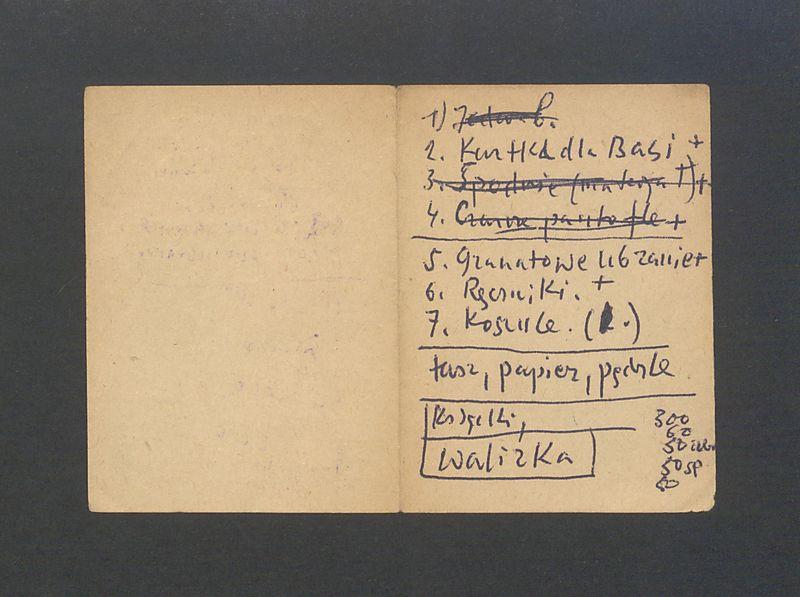 1) Jedwab.
2. Kurtka dla Basi +
3. Spodnie (materja ł) +
4. Czarne pantofle +
5. Granatowe ubranie +
6. Ręczniki. +
7. Koszule. ( .)
tusz, papier, pędzle
Książki,
walizka
300
60
50
50 sp
60